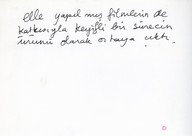 elle yapıl mış filmlerin de
katkısıyla keyifli bir sürecin
ürünü olarak ortaya çıktı.